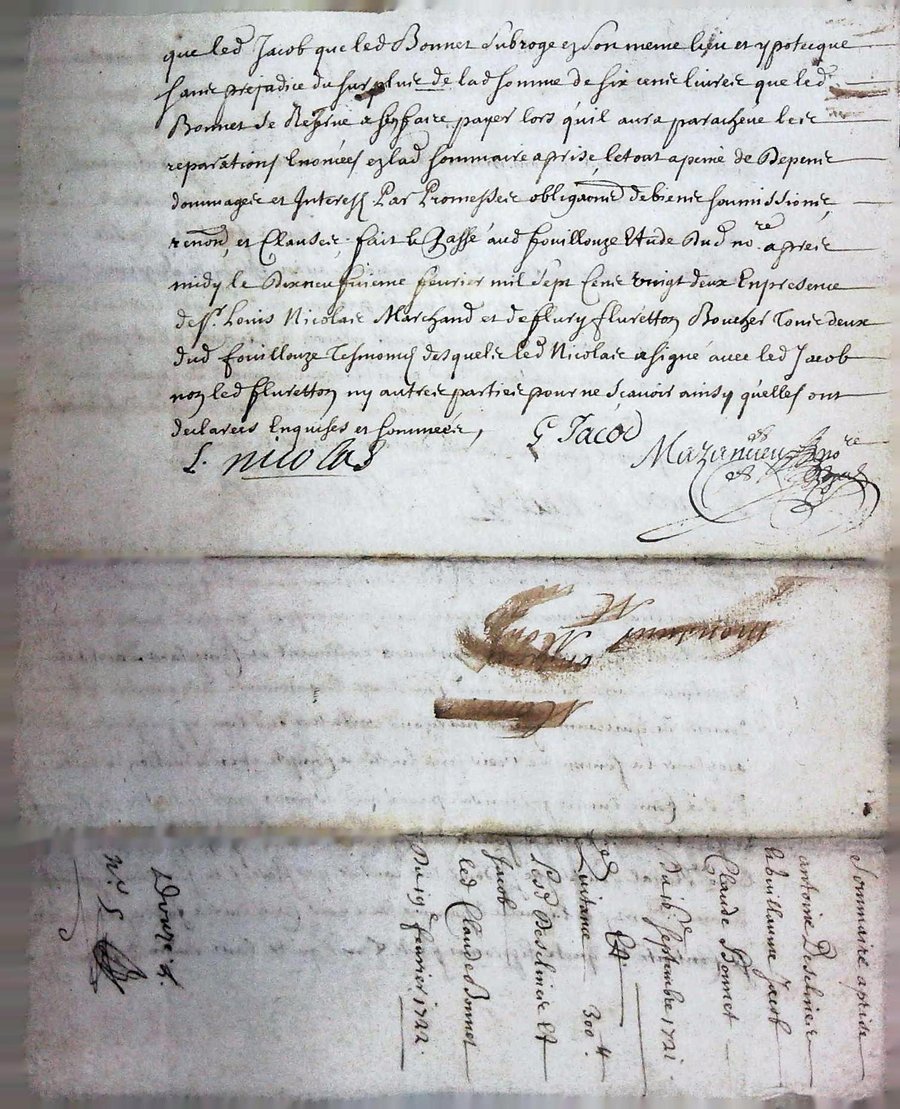 que led Jacob que led Bonnet subroge en son meme lieu et ypotecque
sans prejudice du surplus de lad somme de six cens livres que led
Bonnet se Reserve a se faire payer lors quil aura parachevé les
reparations Enoncées en lad sommaire aprise, le tout a peine de Depens
dommages et Interest Par Promesses obligaons de biens soumissions,
renons, et Clauses, fait et Passé aud fouillouze Etude Dud nore. apres
midy le Dixneufvieme fevrier mil sept Cens vingt deux En presence
de sr. Louis Nicolas Marchand et de flury fluretton Boucher Tous deux
dud fouillouze Tesmoins desquels led Nicolas a signé avec led Jacob
non led fluretton ny autres parties pour ne sçavoir ainsy qu'elles ont
declarées Enquises et sommées,
G Jacod
L. nicolas
nore
Sommaire aprise
antoine Deselinier
Guillaume Jacob
Claude Bonnet
Du 16 septembre 1721.
Et
Quitance 300 #
Lesd Deselinier Et
Jacob
led Claude Bonnet
Du 19. fevrier 1722.
n. 5